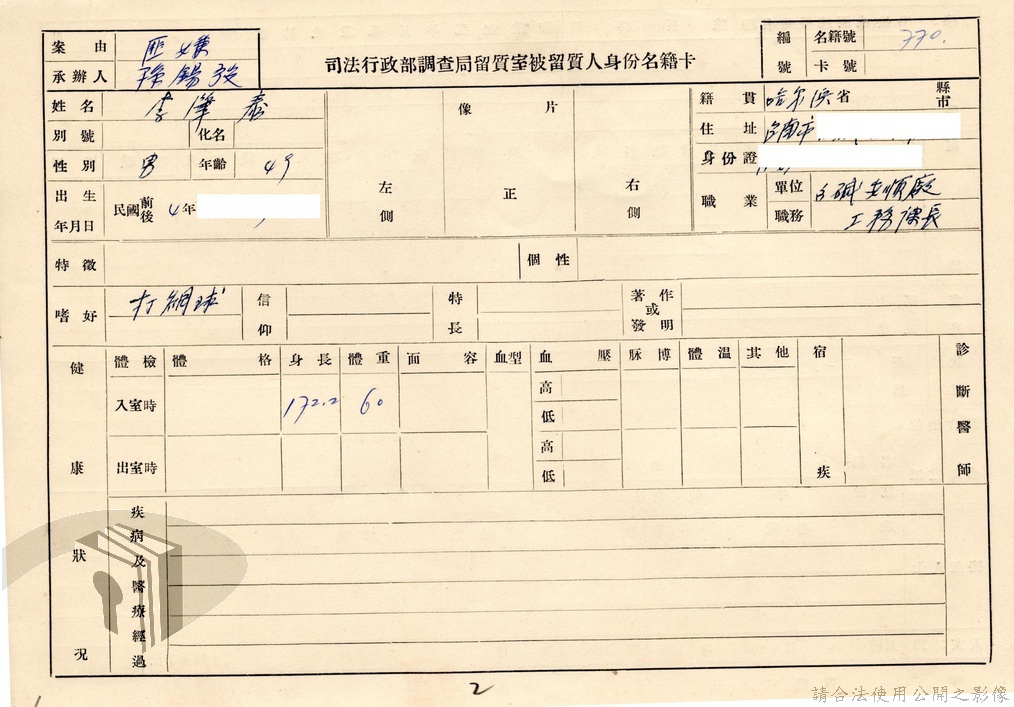 司法行政部調查局留質室被留質人身份名籍卡
案由 匪嫌
承辦人 錫
編號 名籍號 770.
卡號
姓名 李肇泰
別號 化名
性別 男 年齡 49
出生年月日 民國前後 4年
像片
左側 正 右側
籍貫 哈尔滨省 縣市
住址 台南市
身份證
職業 單位 台碱安順廠
職務 工務課長
特徵 個性
嗜好 打網球 信仰 特長 著作或發明
健康狀況
體檢 體格 身長 體重 面容 血型 血壓 脉博 體溫 其他 宿疾 診斷醫師
入室時 172.2 60 高 低
出室時 高 低
疾病及醫療經過
2
請合法使用公開之影像